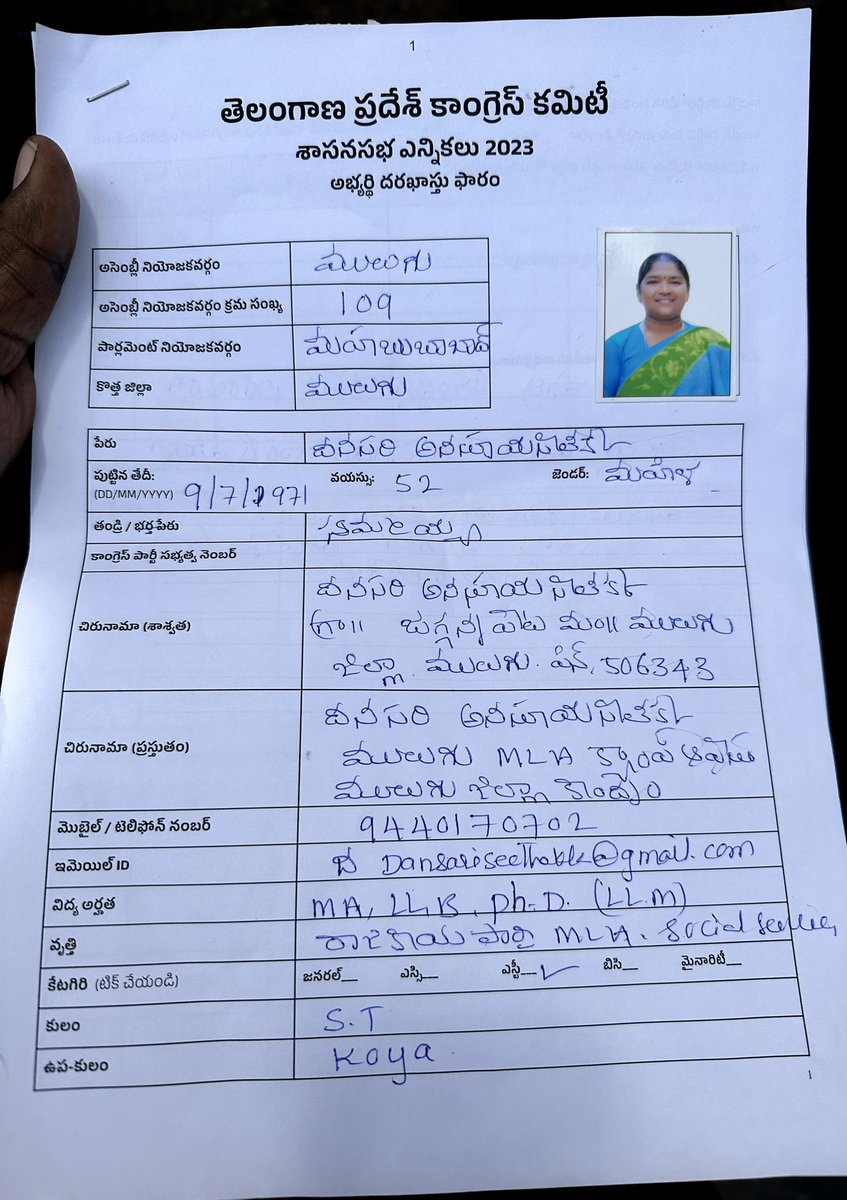 1
తెలంగాణ ప్రదేశ్ కాంగ్రెస్ కమిటీ
శాసనసభ ఎన్నికలు 2023
అభ్యర్థి దరఖాస్తు ఫారం
అసెంబ్లీ నియోజకవర్గం ములుగు
అసెంబ్లీ నియోజకవర్గం క్రమ సంఖ్య 109
పార్లమెంట్ నియోజకవర్గం మహబుబాబాద్
కొత్త జిల్లా ములుగు
పేరు దనసరి అనసూయ సీతక్క
పుట్టిన తేదీ: 9/7/1971 వయస్సు: 52 జెండర్: మహిళ
(DD/MM/YYYY)
తండ్రి / భర్త పేరు సమ్మయ్య
కాంగ్రెస్ పార్టీ సభ్యత్వ నెంబర్
చిరునామా (శాశ్వత) దనసరి అనసూయ సీతక్క
గ్రా|| జగ్గన్న పేట మం|| ములుగు
జిల్లా. ములుగు. పిన్. 506343
చిరునామా (ప్రస్తుతం) దనసరి అనసూయ సీతక్క
ములుగు MLA క్యాంప్ ఆఫీస్
ములుగు జిల్లా కేంద్రం
మొబైల్ / టెలిఫోన్ నంబర్ 9440170702
ఇమెయిల్ ID Dansariseethakk@gmail.com
విద్య అర్హత MA, LLB, Ph.D. (LL.M)
వృత్తి రాజకీయ పార్టీ MLA. Social Service
కేటగిరి (టిక్ చేయండి) జనరల్__ ఎస్సి__ ఎస్టీ__✓ బిసి__ మైనారిటీ__
కులం S.T
ఉప-కులం Koya
1